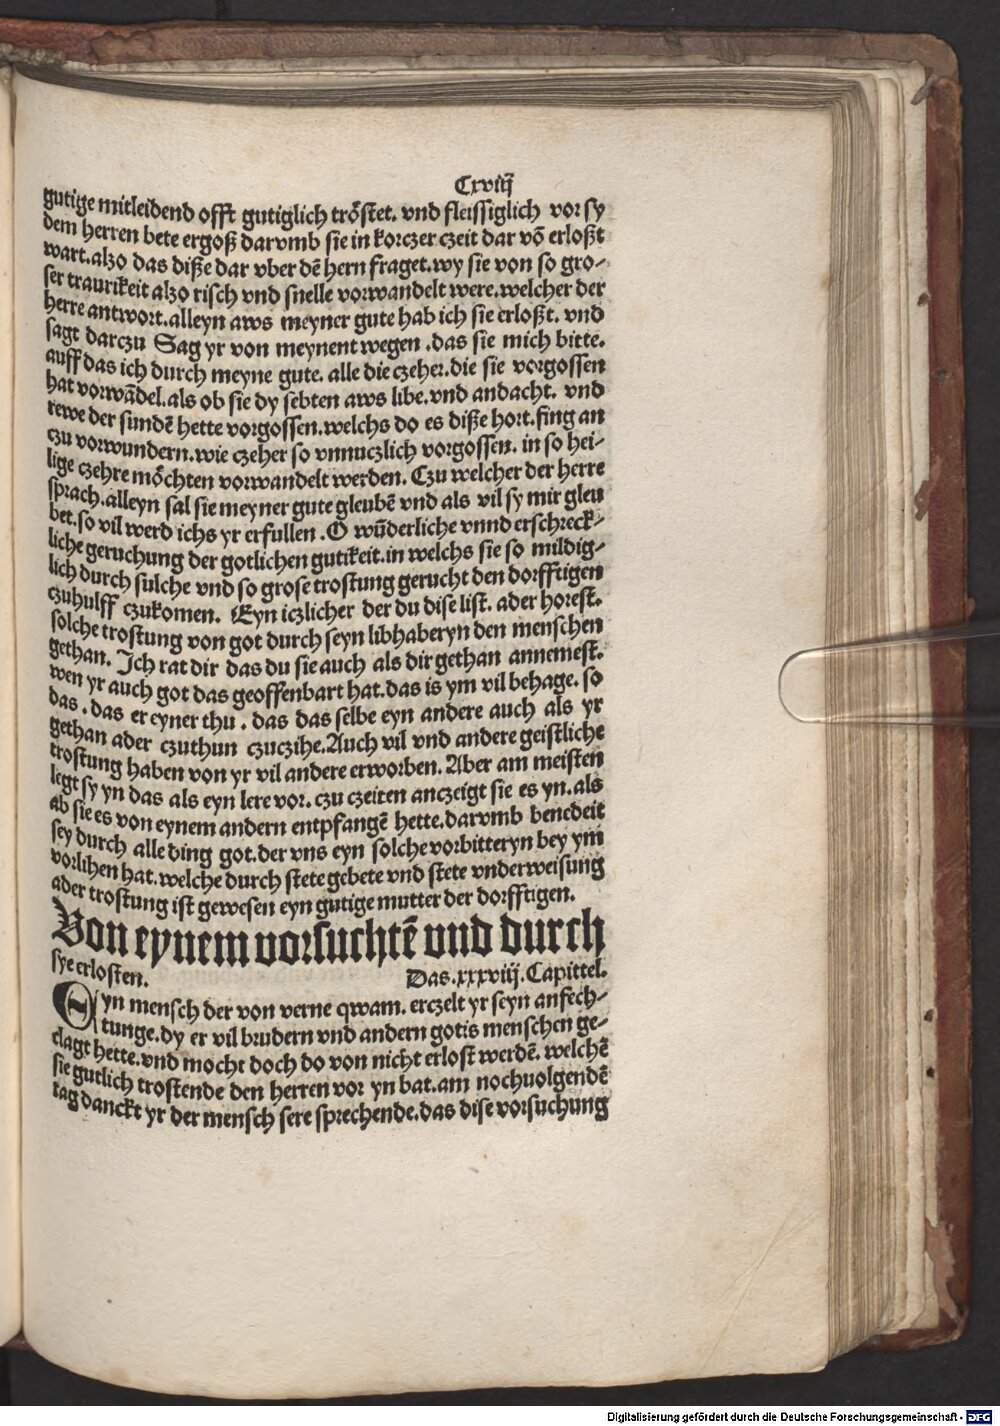 Cxviij
gutige mitleidend offt gutiglich trőstet. vnd fleissiglich vor sy
dem herren bete ergoß darvmb sie in korczer czeit dar vō erloßt
wart. also das diße dar vber dē hern fraget. wy sie von so gro-
ser traurikeit also risch vnd snelle vorwandelt were. welcher der
herre antwort. alleyn aws meyner gute hab ich sie erloßt. vnd
sagt darczu Sag yr von meynent wegen . das sie mich bitte.
auff das ich durch meyne gute. alle die czeher. die sie vorgossen
hat vorwādel. als ob sie dy sebten aws libe. vnd andacht. vnd
rewe der sundē hette vorgossen. welchs do es diße hort. fing an
czu vorwundern. wie czeher so vnnuczlich vorgossen. in so hei-
lige czehre mőchten vorwandelt werden. Czu welcher der herre
sprach. alleyn sal sie meyner gute gleubē vnd als vil sy mir gleu
bet. so vil werd ichs yr erfullen . O wūderliche vnnd erschreck-
liche geruchung der gotlichen gutikeit. in welchs sie so mildig-
lich durch sulche vnd so grose trostung gerucht den dorfftigen
czuhulff czukomen. Eyn iczlicher der du dise list. ader horest.
solche trostung von got durch seyn libhaberyn den menschen
gethan. Ich rat dir das du sie auch als dir gethan annemest.
wen yr auch got das geoffenbart hat. das is ym vil behage. so
das . das er eyner thu . das das selbe eyn andere auch als yr
gethan ader czuthun czuczihe. Auch vil vnd andere geistliche
trostung haben von yr vil andere erworben. Aber am meisten
legt sy yn das als eyn lere vor. czu czeiten anczeigt sie es yn. als
ab sie es von eynem andern entpfangē hette. darvmb benedeit
sey durch alle ding got. der vns eyn solche vorbitteryn bey ym
vorlihen hat. welche durch stete gebete vnd stete vnderweisung
ader trostung ist gewesen eyn gutige mutter der dorfftigen.
Von eynem vorsuchtē vnd durch
sye erlosten. Das. xxxviij. Capittel.
Eyn mensch der von verne qwam. erczelt yr seyn anfech-
tunge. dy er vil brudern vnd andern gotis menschen ge-
clagt hette. vnd mocht doch do von nicht erlost werdē. welchē
sie gutlich trostende den herren vor yn bat. am nochuolgendē
tag danckt yr der mensch sere sprechende. das dise vorsuchung
Digitalisierung gefördert durch die Deutsche Forschungsgemeinschaft - DFG